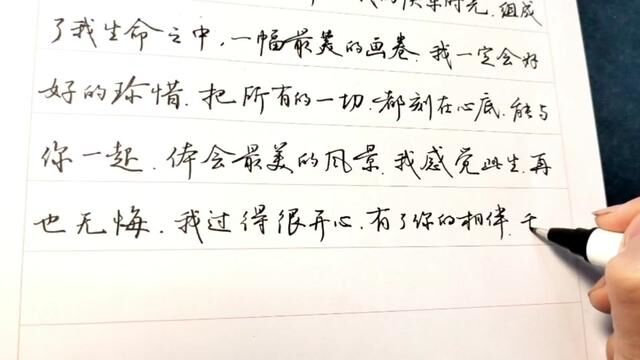 的快乐时光.组成
了我生命之中,一幅最美的画卷.我一定会好
好的珍惜.把所有的一切.都刻在心底.能与
你一起.体会最美的风景.我感觉此生.再
也无悔.我过得很开心.有了你的相伴.